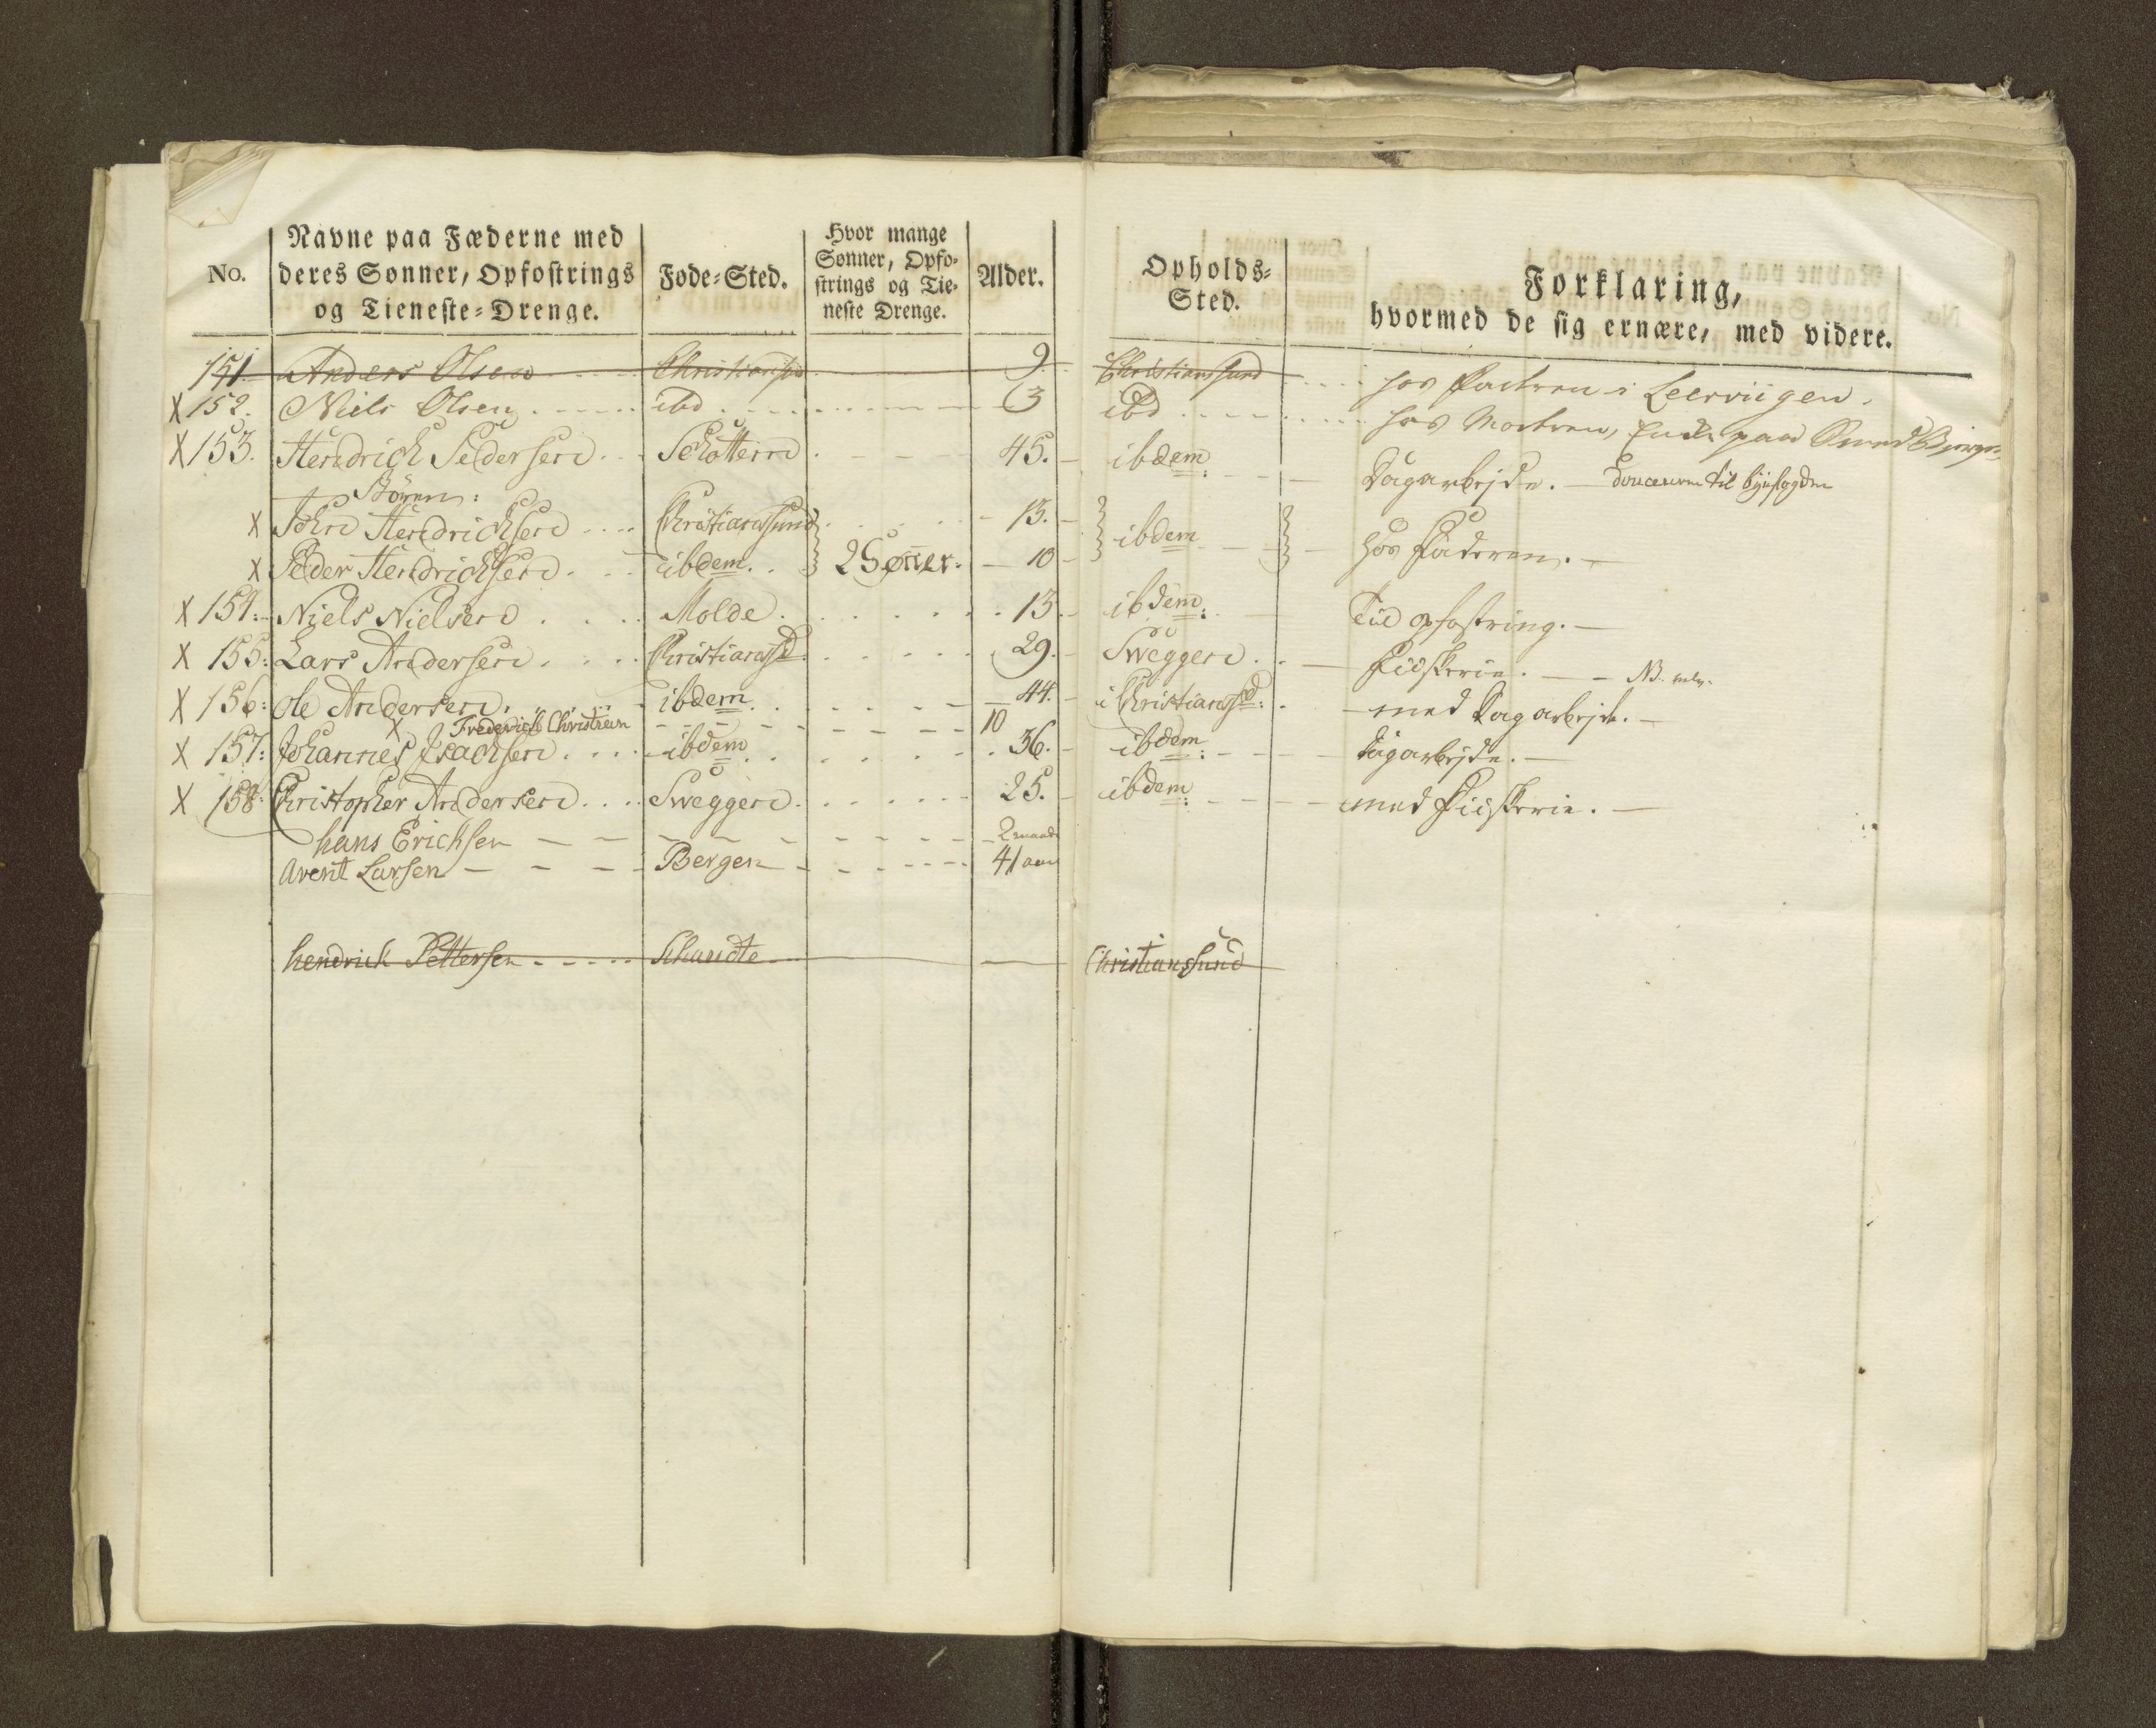 No.
Navne paa Fæderne med
deres Sønner, Opfostrings
og Tieneste-Drenge.
Føde-Sted.
Hvor mange
Sønner, Opfo-
strings og Tie-
neste Drenge.
Alder.
Opholds-
Sted.
Forklaring,
hvormed de sig ernære, med videre.
151. Anders Olsen Christiansund 9. Christianssund hos Fadren i Leerviigen.
X 152. Niels Olsen ibd 3 ibd hos Modren, Enke paa
X 153. Hendrich Pedersen Schotterne 45. ibdem Dagarbejde. til byefogden
Sönner:
X John Hendrichsen Christianssund 13.
ibdem hos Faderen.
X Peder Hendrichsen ibdem 2 Sønner 10
X 154: Niels Nielsen Molde 13 ibdem: Til opfostring.
X 155: Lars Andersen Christianssd 29. Sweggen Fiskerie. NB.
X 156: Ole Andersen ibdem 44. i Christianssd: med Dagarbejde.
X Frederich Christian 10
X 157: Johannes Isachsen ibdem 36. ibdem: Dagarbejde.
X 158: Christopher Andersen Sweggen 25. ibdem: med Fiskerie.
hans Erichsen 2 maand
Arent Larsen Bergen 41 aar
hendrick Pettersen Christianssund